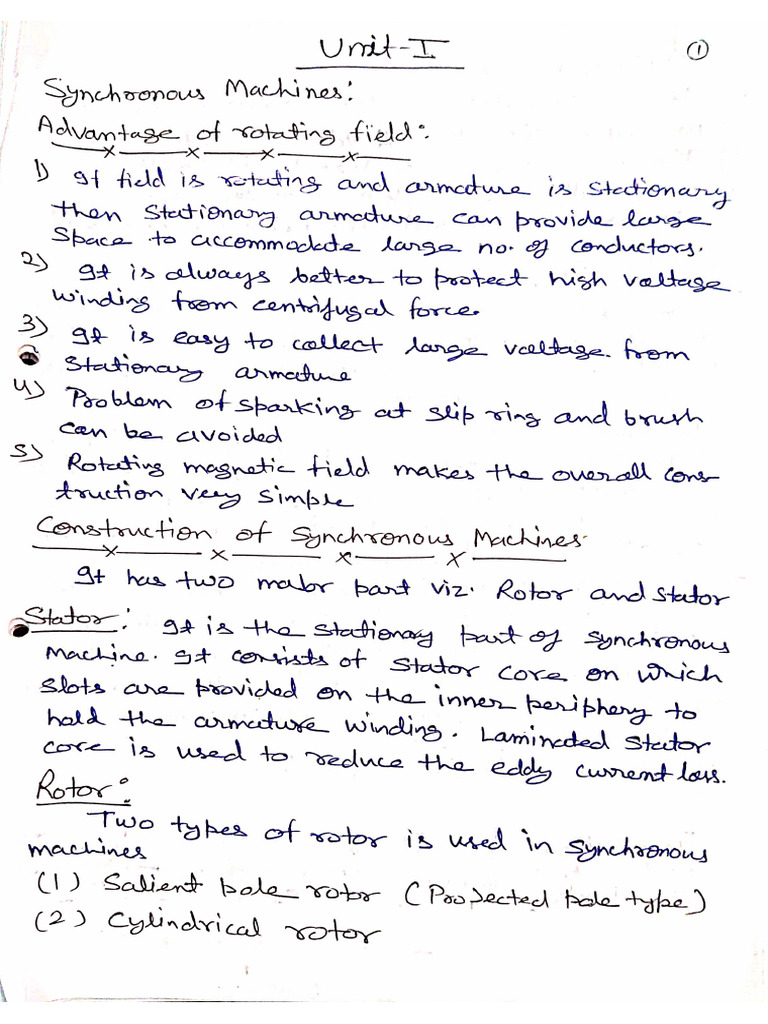 Unit-I
①
Synchronous Machines:
Advantage of rotating field:
1) If field is rotating and armature is stationary
then stationary armature can provide large
space to accommodate large no. of conductors.
2) It is always better to protect high voltage
winding from centrifugal force.
3) It is easy to collect large voltage from
stationary armature
4) Problem of sparking at slip ring and brush
can be avoided
5) Rotating magnetic field makes the overall cons-
truction very simple
Construction of Synchronous Machines
It has two major part viz. Rotor and stator
Stator: It is the stationary part of synchronous
machine. It consists of stator core on which
slots are provided on the inner periphery to
hold the armature winding. Laminated stator
core is used to reduce the eddy current loss.
Rotor:
Two types of rotor is used in synchronous
machines
(1) Salient pole rotor (Projected pole type)
(2) Cylindrical rotor